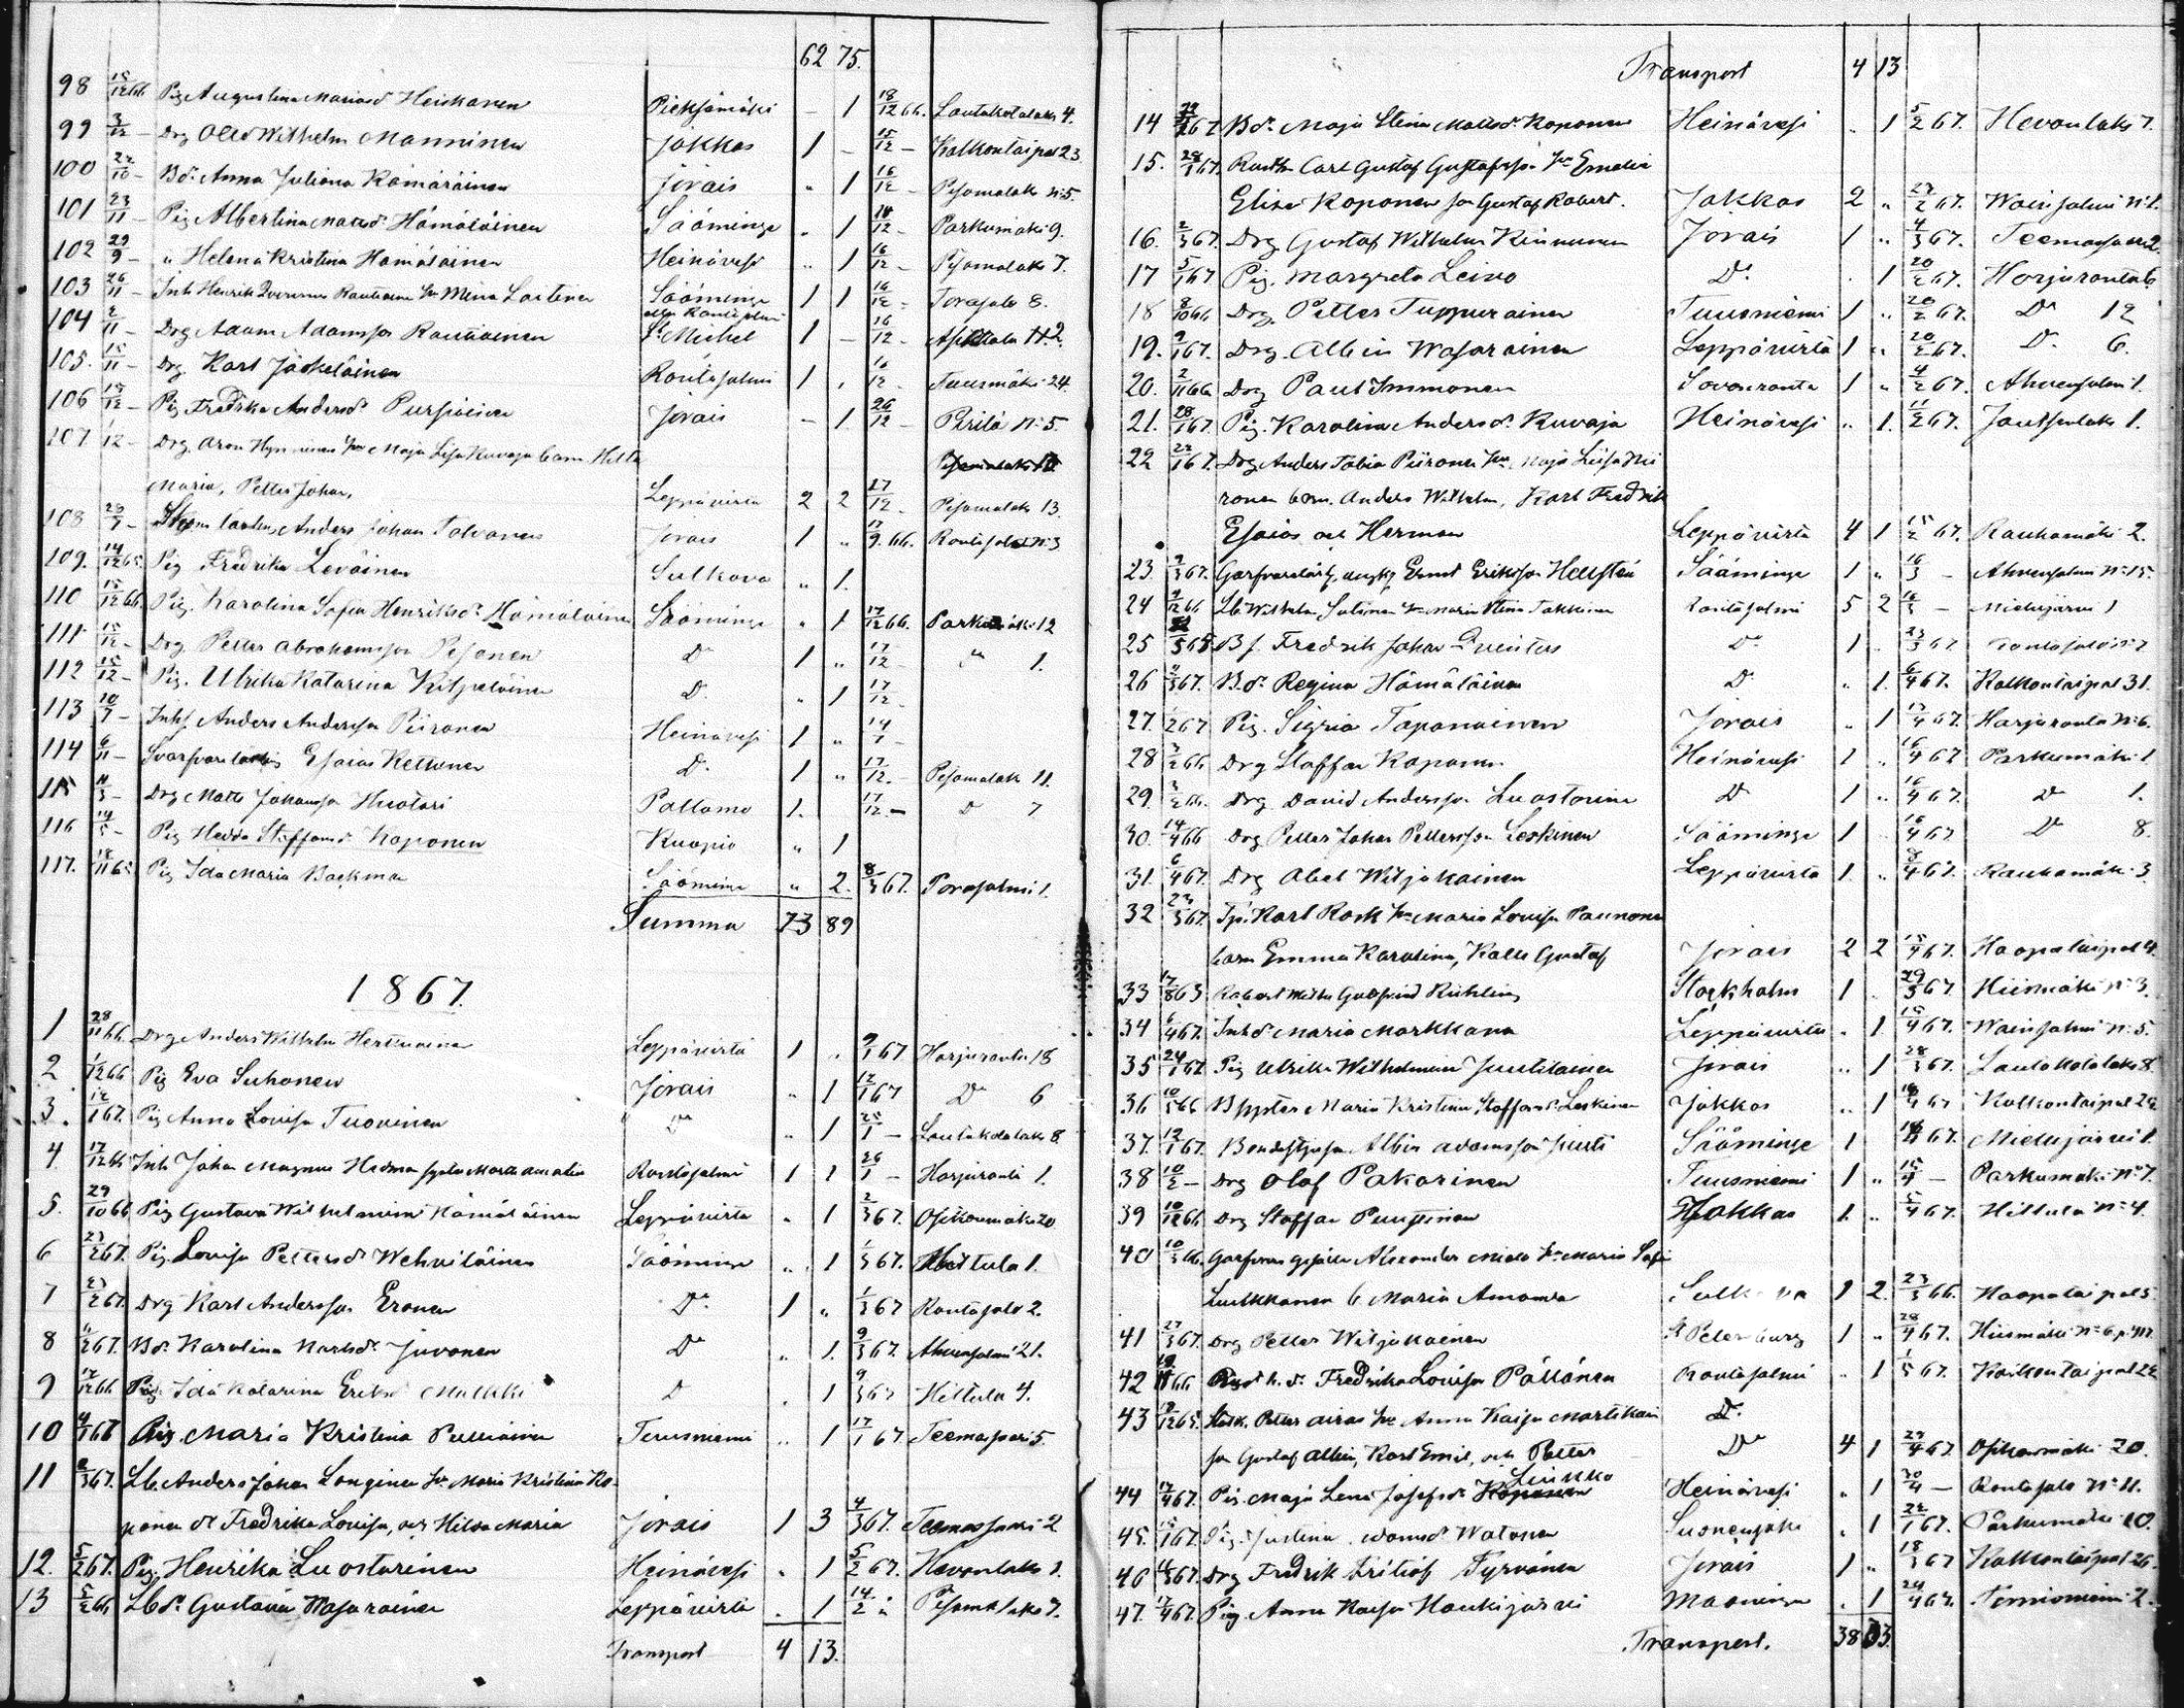 62 75.
98 15/12 66 Pig Augustina Mariasdr Heiskanen Pieksämäki - 1 18/12 66. Lautakotalaks 4.
99 3/12 - Drg Olld Wilhelm Manninen Jokkas 1 - 15/12 - Kolkontaipal 23
100 22/10 - Bdr Anna Juliana Kämäräinen Jorais " 1 16/12 - Pesomalaks N:5.
101 23/11 - Pig Albertina Mattsdr Hämäläinen Sääminge " 1 18/12 - Parkumäki 9.
102 29/9 - " Helena Kristina Hämäläinen Heinävesi " 1 16/12 - Pesomalaks 7.
103 26/11 - Inh Henrik Rautiainen hu Mina Laitinen Sääminge 1 1 16/12 - Torasalo 8.
104 2/11 - Drg Adam Adamsson Rautiainen St Michel 1 - 16/12 - N.2.
105. 15/11 - Drg Karl Jääskeläinen Rantasalmi 1 . 16/12 - Tuusmäki 24.
106 15/12 - Pig Fredrika Andersdr Pursiainen Jorais - 1 26/12 - Pirilä N:5.
107 1/12 - Drg Aron Hynninen hu Maja Lisa Kuvaja barn Hilta
Maria, Petter Johan, Leppävirta 2 2 27/12 - Pesomalaks 13.
108 23/7 - Anders Johan Tolvanen Jorais 1 " 17/9 66. Rantasalo N:3
109. 14/12 65. Pig Fredrika Leväinen Sulkava " 1.
110 15/12 66 Pig. Karolina Sofia Henriksdr Hämäläinen Sääminge " 1 17/12 66. Parkumäki 12
111 15/12 - Drg Petter Abrahamsson Pesonen Do 1 " 17/12 - " 1.
112 15/12 - Pig. Ulrika Katarina Kilpeläinen Do " 1 17/12 -
113 10/7 - Inhs Anders Andersson Piironen Heinävesi 1 " 14/7 -
114 6/11 - Esaias Kettunen Do 1 " 17/12 - Pesomalak 11.
115 11/3 - Drg Matts Johansson Huotari Paltamo 1. 17/12 - Do 7
116 14/5 - Pig Hedda Staffansdr Koponen Kuopio " 1
117. 18/11 65 Pig Ida Maria Backman Sääminge " 2. 8/3 67. Porosalmi 1.
Summa 73 89
1867.
1 28/11 66. Drg Anders Wilhelm Herttuainen Leppävirta 1 " 9/1 67 Harjuranta 18
2 1/12 66 Pig Eva Suhonen Jorais " 1 12/1 67 Do 6
3. 12/1 67. Pig Anna Lovisa Tuovinen Do " 1 25/1 - Lautakotalaks 8.
4 17/12 66 Inh Johan Magnus Hedman Rantasalmi 1 1 26/1 - Harjuranta 1.
5. 29/10 66 Pig Gustava Wilhelmina Hämäläinen Leppävirta " 1 2/3 67. Osikonmäki 20
6 23/2 67. Pig. Lovisa Pettersdr Wehviläinen Sääminge " 1 1/3 67. Hiltula 1.
7 23/2 67. Drg Karl Andersson Eronen Do 1 " 1/3 67 Rantasalo 2.
8 11/2 67. Bdr Karolina Karlsdr Juvonen Do " 1. 9/3 67. Ahvensalmi 21.
9 17/12 66 Pig Ida Katarina Eriksdr Malkki D . 1 9/3 67 Hiltula 4.
10 4/1 67 Pig. Maria Kristina Pulliainen Tuusniemi " 1 17/1 67 Teemassaari 5.
11 2/3 67. Lb. Anders Johan Longinen hu Maria Kristina Ko-
ponen dr Fredrika Lovisa, och Hilda Maria Jorais 1 3 4/3 67. Teemassaari 2
12. 5/2 67. Pig. Henrika Luostarinen Heinävesi " 1 5/2 67. Hevonlaks 1.
13 5/2 66 Lbdr. Gustava Wasarainen Leppävirta . 1 14/2 " Pesomalaks 7.
Transport 4 13.
Transport 4 13
14 29/1 67 Bdr Maja Stina Mattsdr Koponen Heinävesi . 1 5/2 67. Hevonlaks 7.
15. 28/1 67. Carl Gustaf Gustafsson hu Emelie
Elisa Koponen son Gustaf Robert. Jokkas 2 " 27/2 67. Wainsalmi N:1.
16. 2/3 67. Drg Gustaf Wilhelm Kinnunen Jorais 1 " 4/3 67. Teemassaari 2
17 5/1 67 Pig. Margreta Leivo Do . 1 20/2 67. Harjuranta 6
18 8/10 66 Drg. Petter Tuppurainen Tuusniemi 1 " 20/2 67. Do 12
19. 9/1 67. Drg. Albin Wasarainen Leppävirta 1 " 20/2 67. Do 6.
20. 2/11 66 Drg Paul Immonen Savonranta 1 " 4/2 67. Ahvensalmi 1.
21. 28/1 67 Pig. Karolina Andersdr Kuvaja Heinävesi " 1. 11/2 67. Joutsenlaks 1.
22 22/1 67. Drg Anders Tobias Piironen hu. Maja Liisa Pii
ronen barn. Anders Wilhelm, Karl Fredrik
Esaias och Herman Leppävirta 4 1 15/2 67. Rauhamäki 2.
23 7/3 67. Ernst Eriksson Hellstén Sääminge 1 " 16/3 - Ahvensalmi N:15.
24 9/12 66 Lb Wilhelm Sutinen hu Maria Stina Takkinen Rantasalmi 5 2 16/3 - Mielusjärvi 1
25 5 65 Bs. Fredrik Johan Do 1 . 23/3 67 Rantasalo N:7
26 9/3 67. Bdr. Regina Hämäläinen Do " 1. 6/4 67. Kolkontaipal 31.
27. 1/2 67 Pig. Sigria Tapanainen Jorais " 1 13/4 67. Harjuranta N:6.
28 3/2 66 Drg Staffan Koponen Heinävesi 1 . 16/4 67 Parkumäki 1
29. 3/2 66. Drg David Andersson Luostarinen Do 1 " 16/4 67. Do 1.
30. 14/4 66 Drg Petter Johan Pettersson Leskinen Sääminge 1 . 16/4 67 Do 8.
31. 6/4 67. Drg Abel Wiljakainen Leppävirta 1. " 8/4 67. Rauhamäki 3.
32 23/3 67. Karl Rask hu Maria Lovisa Paunonen
barn Emma Karolina, Kalle Gustaf Jorais 2 2 15/4 67. Haapataipal 4.
33 17/8 63 Robert Gottfrid Stockholm 1 . 29/3 67 Hiismäki N:3.
34 6/4 67. Inhdr Maria Markkana Leppävirta . 1. 15/4 67. Wainsalmi N:5.
35 24/1 67 Pig Ulrika Wilhelmina Juutilainen Jorais " 1 28/3 67. Lautakotalaks 8.
36 10/5 66 Maria Kristina Staffansdr Leskinen Jokkas " 1 18/4 67 Kolkontaipal 22
37. 12/1 67. Albin Adamsson Sääminge 1 16/4 67. Mielusjärvi 1.
38 10/2 - Drg Olof Pakarinen Tuusniemi 1 " 15/4 - Parkumäki No 7.
39 10/12 66 Drg Staffan Puustinen Jokkas 1. " 5/4 67. Hiltula N:4.
40 10/3 66. Alexander hu Maria Sofia
Luukkanen b Maria Amanda Sulkava 1 2. 23/3 66. Haapataipal 5
41 27/3 67. Drg Petter Wiljakainen St Petersburg 1 " 28/4 67. Hiismäki No 6,
42 66 Fredrika Lovisa Pöllänen Rantasalmi . 1 1/5 67. Kolkontaipal 22
43 12 65. Petter Airas hu Anna Kaisa Martikainen Do
son Gustaf Albin, Karl Emil, och Petter Do 4 1 27/4 67 Osikonmäki 20.
44 17/4 67. Pig. Maja Lena Josefsdr Liukko Heinävesi . 1 30/4 - Rantasalo No 11.
45. 15/1 67. Pig. Justina Adamsdr Watanen Suonenjoki . 1 22/1 67. Parkumäki 10.
46 4/3 67. Drg Fredrik Fritiof Tyrvänen Jorais 1 " 18/3 67 Kolkontaipal 26.
47. 17/4 67. Pig. Anna Kaisa Haukijärvi Maaninga . 1 24/4 67. Torniomäki 2.
Transport. 38 33.